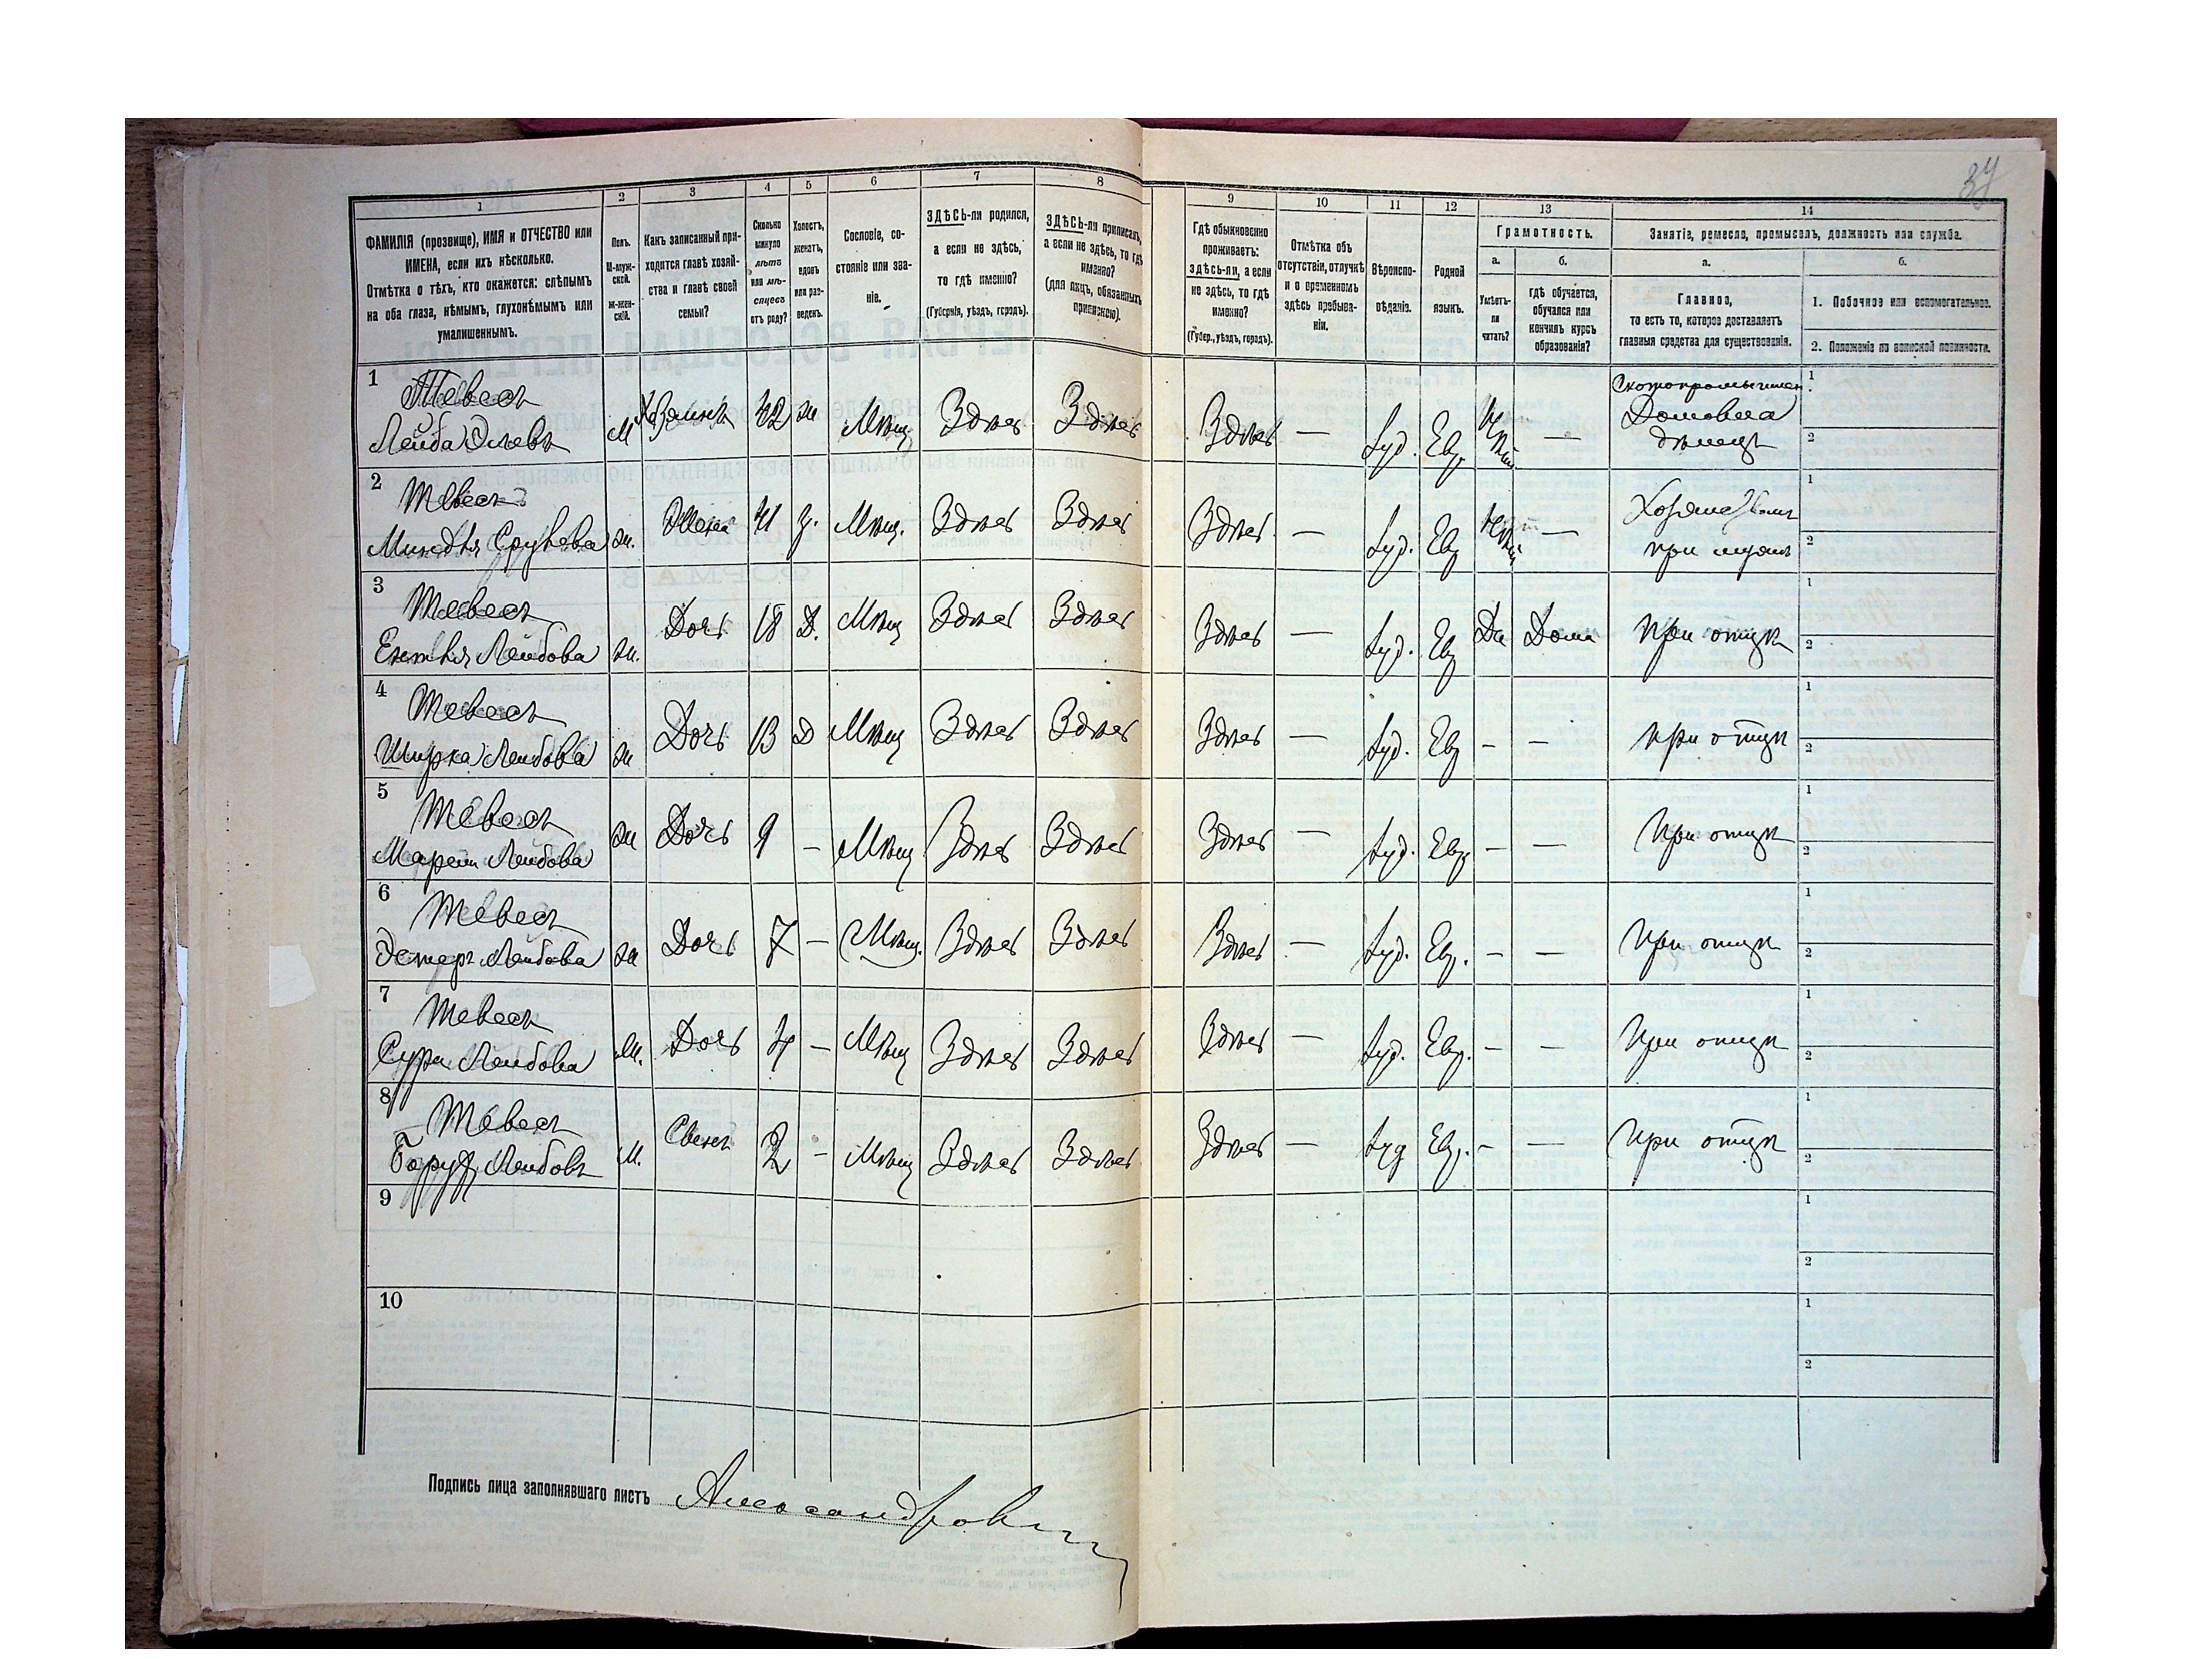 37
1 2 3 4 5 6 7 8 9 10 11 12 13 14
ФАМИЛІЯ (прозвище), ИМЯ и ОТЧЕСТВО или
ИМЕНА, если ихъ нѣсколько.
Отмѣтка о тѣхъ, кто окажется: слѣпымъ
на оба глаза, нѣмымъ, глухонѣмымъ или
умалишеннымъ.
Полъ.
М-муж-
ской.
ж-жен-
скій.
Какъ записанный при-
ходится главѣ хозяй-
ства и главѣ своей
семьи?
Сколько
минуло
лѣтъ
или мѣ-
сяцевъ
отъ роду?
Холостъ,
женатъ,
вдовъ
или раз-
веденъ.
Сословіе, со-
стояніе или зва-
ніе.
ЗДѢСЬ-ли родился,
а если не здѣсь,
то гдѣ именно?
(Губернія, уѣздъ, городъ).
ЗДѢСЬ-ли приписанъ,
а если не здѣсь, то гдѣ
именно?
(для лицъ, обязанныхъ
припискою).
Гдѣ обыкновенно
проживаетъ:
здѣсь-ли, а если
не здѣсь, то гдѣ
именно?
(Губер., уѣздъ, городъ).
Отмѣтка объ
отсутствіи, отлучкѣ
и о временномъ
здѣсь пребыва-
ніи.
Вѣроиспо-
вѣданіе.
Родной
языкъ.
Грамотность.
а.
Умѣетъ-
ли
читать?
б.
гдѣ обучается,
обучался или
кончилъ курсъ
образованія?
Занятіе, ремесло, промыселъ, должность или служба.
а.
Главное,
то есть то, которое доставляетъ
главныя средства для существованія.
б.
1. Побочное или вспомогательное.
2. Положеніе по воинской повинности.
1
Тевесъ
Лейба Элевъ М Хозяинъ 42 ж Мѣщ. Здѣсь Здѣсь Здѣсь — Іуд. Евр. —
Скотопромышлен
Домовла
дѣлецъ
1
2
2
Тевесъ
ж. Жена 41 з. Мѣщ. Здѣсь Здѣсь Здѣсь — Іуд. Евр —
при мужѣ
1
2
3
Тевесъ
Лейбова ж. Дочь 18 Д. Мѣщ Здѣсь Здѣсь Здѣсь — Іуд. Евр Да Дома При отцѣ
1
2
4
Тевесъ
Ширка Лейбова ж Дочь 13 Д Мѣщ Здѣсь Здѣсь Здѣсь — Іуд. Евр - - при отцѣ
1
2
5
Тевесъ
Лейбова ж Дочь 9 — Мѣщ Здѣсь Здѣсь Здѣсь — Іуд. Евр. - — При отцѣ
1
2
6
Тевесъ
Эстеръ Лейбова ж Дочь 7 — Мѣщ. Здѣсь Здѣсь Здѣсь — Іуд. Евр. - — При отцѣ
1
2
7
Тевесъ
Сура Лейбова М. Дочь 4 — Мѣщ Здѣсь Здѣсь Здѣсь — Іуд. Евр. - - При отцѣ
1
2
8
Тевесъ
Борухъ Лейбовъ М. Сынъ 2 - Мѣщ Здѣсь Здѣсь Здѣсь — Іуд Евр. - — При отцѣ
1
2
9
1
2
10
1
2
Подпись лица заполнявшаго листъ